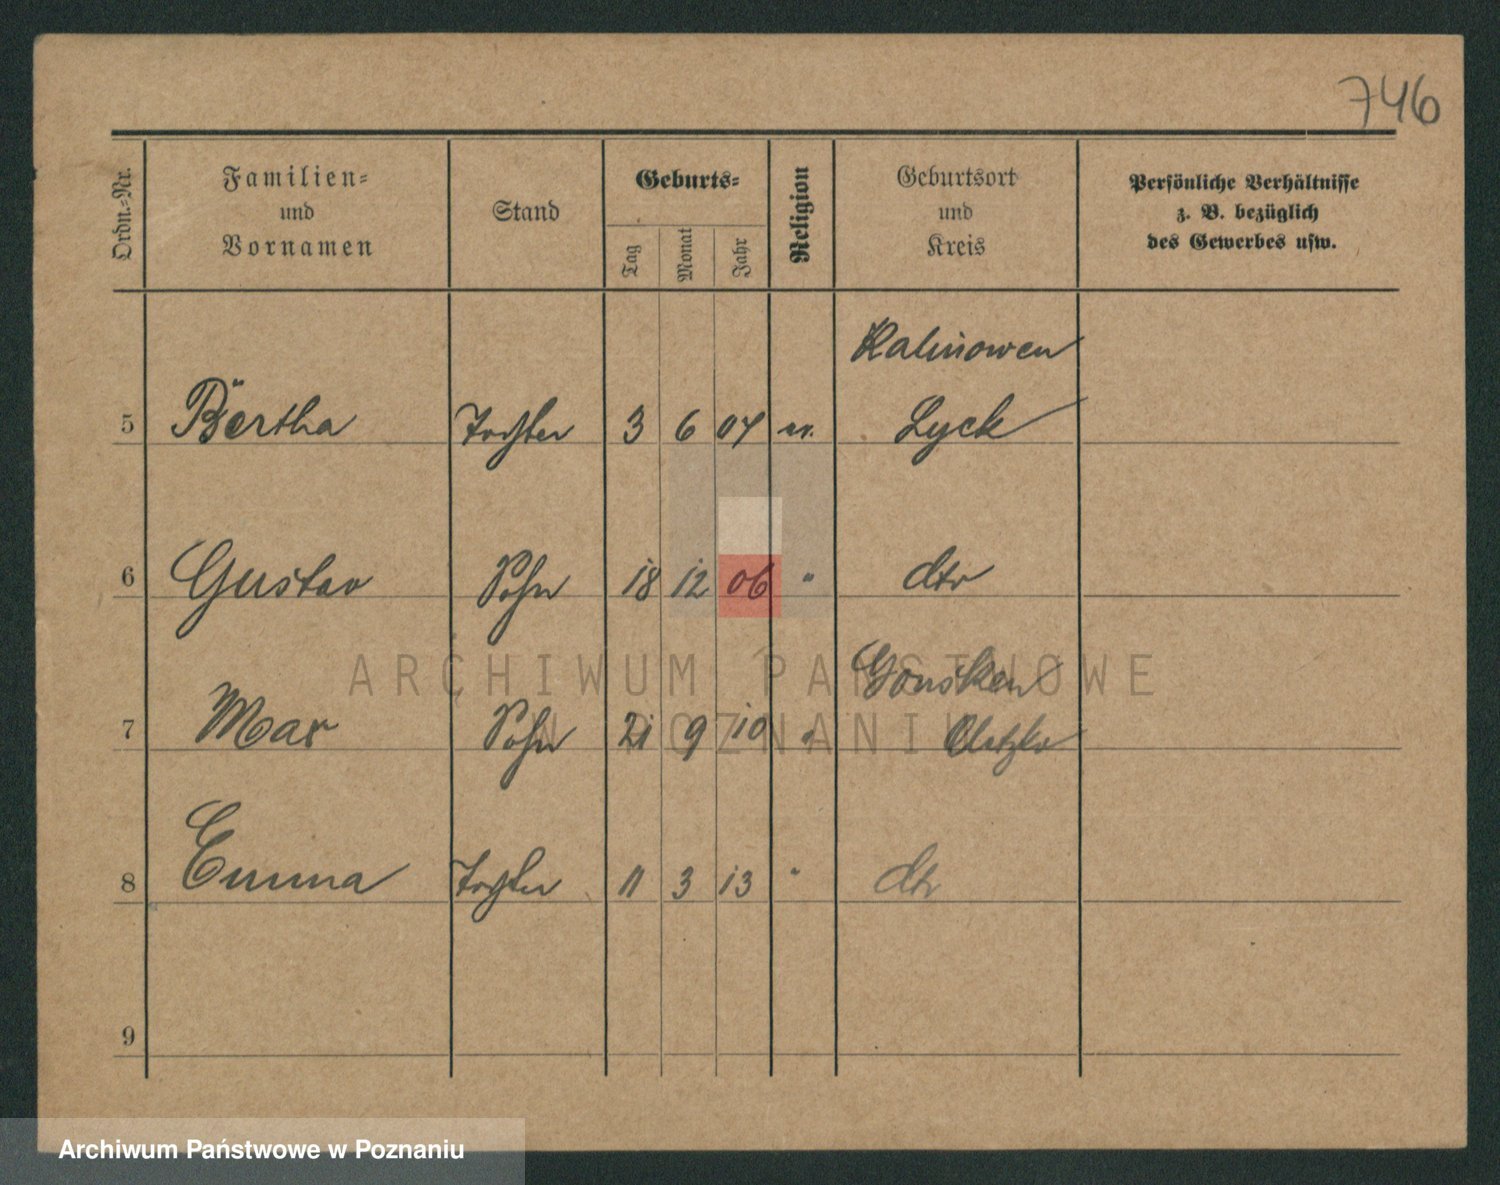 746
Ordn.-Nr.
Familien-
und
Vornamen
Stand
Geburts-
Tag
Monat
Jahr
Religion
Geburtsort
und
Kreis
Persönliche Verhältnisse
z. B. bezüglich
des Gewerbes usw.
Kalinowen
5 Bertha Tochter 3 6 07 ev. Lyck
6 Gustav Sohn 18 12 06 " dto
Gonsken
7 Max Sohn 21 9 10 " Oletzko
8 Emma Tochter 11 3 13 " dto
9
ARCHIWUM PAŃSTWOWE
W POZNANIU
Archiwum Państwowe w Poznaniu